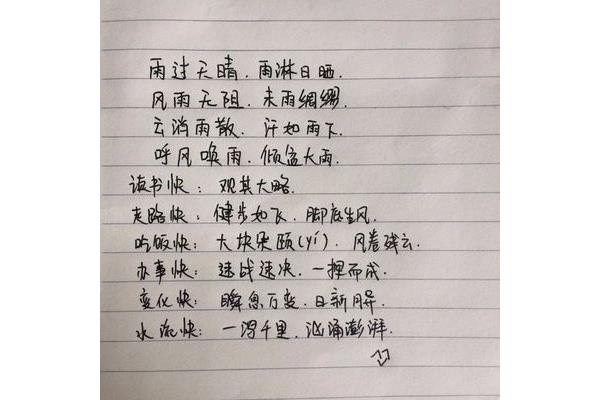 雨过天晴.雨淋日晒.
风雨无阻.未雨绸缪.
云消雨散.汗如雨下.
呼风唤雨.倾盆大雨.
读书快：观其大略.
走路快：健步如飞.脚底生风.
吃饭快：大块朵颐(yí).风卷残云.
办事快：速战速决.一挥而成.
变化快：瞬息万变.日新月异.
水流快：一泻千里.汹涌澎湃.